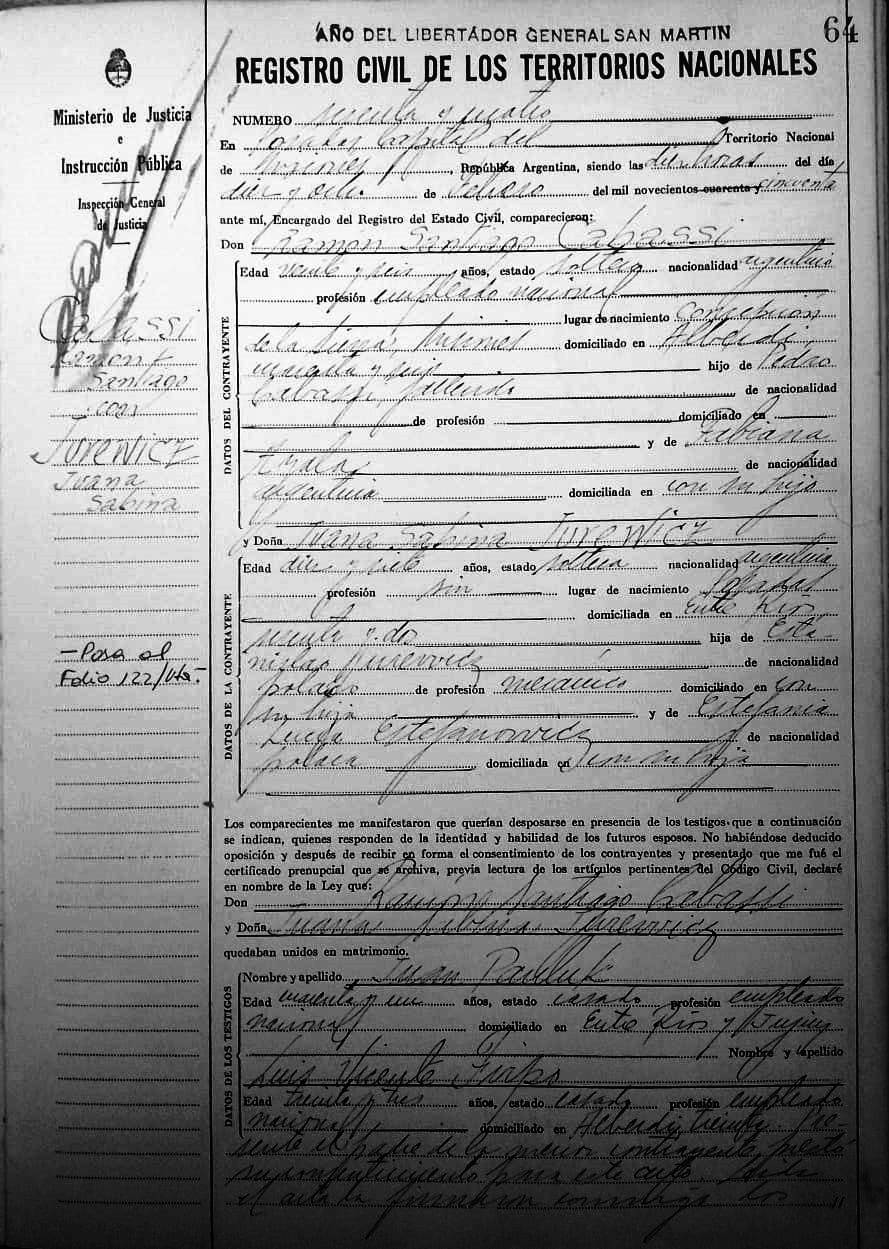 AÑO DEL LIBERTADOR GENERAL SAN MARTIN
64
REGISTRO CIVIL DE LOS TERRITORIOS NACIONALES
Ministerio de Justicia
e
Instrucción Pública
Inspección General
de Justicia
Cabassi
Ramón
Santiago
con
Jurewicz
Juana
Sabina
- Pasa al
Folio 122/Vta-
NUMERO sesenta y cuatro
En Posadas, Capital del Territorio Nacional
de Misiones, República Argentina, siendo las diez horas del día
diez y ocho de Febrero del mil novecientos cuarenta y cincuenta
ante mí, Encargado del Registro del Estado Civil, comparecieron:
Don Ramón Santiago Cabassi
DATOS DEL CONTRAYENTE
Edad veinte y seis años, estado soltero nacionalidad argentina
profesión empleado nacional
lugar de nacimiento Concepción
de la Sierra, Misiones domiciliado en Alberdi
hijo de Pedro
Cabassi, fallecido de nacionalidad
de profesión domiciliado en
y de Fabiana
de nacionalidad
argentina domiciliada en con su hijo
y Doña Juana Sabina Jurewicz
DATOS DE LA CONTRAYENTE
Edad diez y siete años, estado soltera nacionalidad argentina
profesión sin lugar de nacimiento Posadas
domiciliada en Entre Ríos
sesenta y dos hija de Esta-
nislao Jurewicz de nacionalidad
polaco de profesión mecánico domiciliado en con
su hija y de Estefania
Lucia Estefanowicz de nacionalidad
polaca domiciliada en con su hija
Los comparecientes me manifestaron que querían desposarse en presencia de los testigos que a continuación
se indican, quienes responden de la identidad y habilidad de los futuros esposos. No habiéndose deducido
oposición y después de recibir en forma el consentimiento de los contrayentes y presentado que me fué el
certificado prenupcial que se archiva, previa lectura de los artículos pertinentes del Código Civil, declaré
en nombre de la Ley que:
Don Ramón Santiago Cabassi
y Doña Juana Sabina Jurewicz
quedaban unidos en matrimonio.
DATOS DE LOS TESTIGOS
Nombre y apellido Juan Pawluk
Edad cincuenta y un años, estado casado profesión empleado
nacional domiciliado en Entre Ríos y Jujuy
Nombre y apellido
Luis Vicente Firpo
Edad treinta y tres años, estado casado profesión empleado
nacional domiciliado en Alberdi treinta. Pre-
sente el padre de la menor contrayente prestó
su consentimiento para este acto. Leída
el acta la firmaron conmigo los